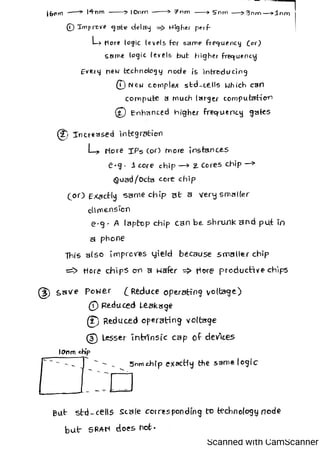 16nm → 14nm → 10nm → 7nm → 5nm → 3nm → 1nm
① Improve gate delay ⇒ Higher perf
↳ More logic levels for same frequency (or)
same logic levels but higher frequency
Every new technology node is introducing
① New complex std-cells which can
compute a much larger computation
② Enhanced higher frequency gates
② Increased integration
↳ More IPs (or) more instances
e.g. 1 core chip → 2 cores chip →
Quad/Octa core chip
(or) Exactly same chip at a very smaller
dimension
e.g. A laptop chip can be shrunk and put in
a phone
This also improves yield because smaller chip
⇒ More chips on a wafer ⇒ More productive chips
③ Save Power (Reduce operating voltage)
① Reduced Leakage
② Reduced operating voltage
③ Lesser intrinsic cap of devices
10nm chip
5nm chip exactly the same logic
But std-cells scale corresponding to technology node
but SRAM does not.
Scanned with CamScanner